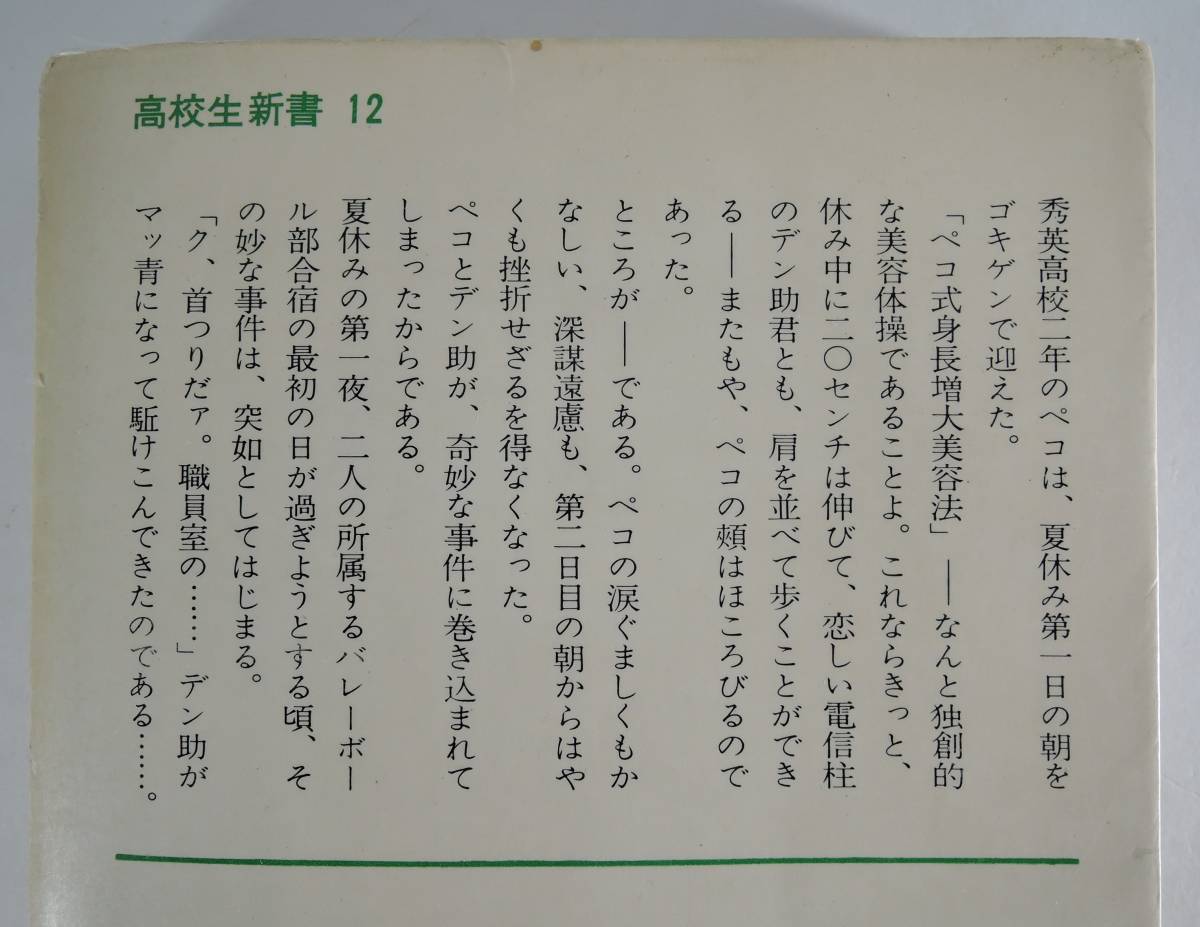 高校生新書 12
秀英高校二年のペコは、夏休み第一日の朝を
ゴキゲンで迎えた。
「ペコ式身長増大美容法」――なんと独創的
な美容体操であることよ。これならきっと、
休み中に二〇センチは伸びて、恋しい電信柱
のデン助君とも、肩を並べて歩くことができ
る――またもや、ペコの頰はほころびるので
あった。
ところが――である。ペコの涙ぐましくもか
なしい、深謀遠慮も、第二日目の朝からはや
くも挫折せざるを得なくなった。
ペコとデン助が、奇妙な事件に巻き込まれて
しまったからである。
夏休みの第一夜、二人の所属するバレーボー
ル部合宿の最初の日が過ぎようとする頃、そ
の妙な事件は、突如としてはじまる。
「ク、首つりだァ。職員室の……」デン助が
マッ青になって駈けこんできたのである……。